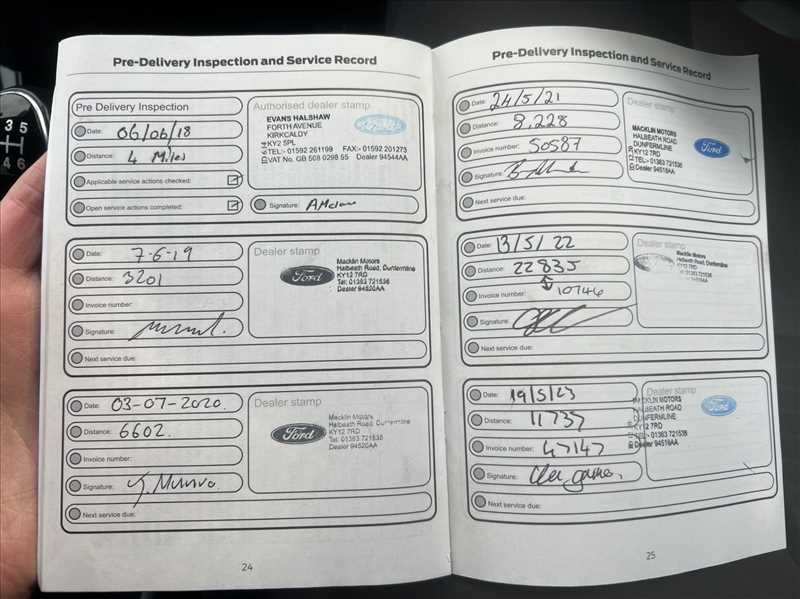 3 5
4 6
Pre-Delivery Inspection and Service Record
Pre Delivery Inspection
Date: 06/06/18
Distance: 4 Miles
Applicable service actions checked:
Open service actions completed:
Authorised dealer stamp
EVANS HALSHAW
FORTH AVENUE
KIRKCALDY
KY2 5PL
TEL:- 01592 261199 FAX:- 01592 201273
VAT No. GB 508 0298 55 Dealer 94544AA
Signature:
Date: 7-6-19
Distance: 3201
Invoice number:
Signature:
Next service due:
Dealer stamp
Ford
Macklin Motors
Halbeath Road, Dunfermline
KY12 7RD
Tel: 01383 721536
Dealer 94520AA
Date: 03-07-2020.
Distance: 6602.
Invoice number:
Signature: J. Munro
Next service due:
Dealer stamp
Ford
Macklin Motors
Halbeath Road, Dunfermline
KY12 7RD
Tel: 01383 721536
Dealer 94520AA
24
Pre-Delivery Inspection and Service Record
Date: 24/5/21
Distance: 8,228
Invoice number: 50587
Signature:
Next service due:
Dealer stamp
MACKLIN MOTORS
HALBEATH ROAD
DUNFERMLINE
KY12 7RD
TEL:- 01383 721536
Dealer 94516AA
Ford
Date: 13/5/22
Distance: 22835
Invoice number: 10746
Signature:
Next service due:
Dealer stamp
Macklin Motors
Halbeath Road, Dunfermline
KY12 7RD
Date: 19/5/23
Distance: 11737
Invoice number: 47147
Signature:
Next service due:
Dealer stamp
MACKLIN MOTORS
HALBEATH ROAD
DUNFERMLINE
KY12 7RD
TEL:- 01383 721536
Dealer 94516AA
Ford
25